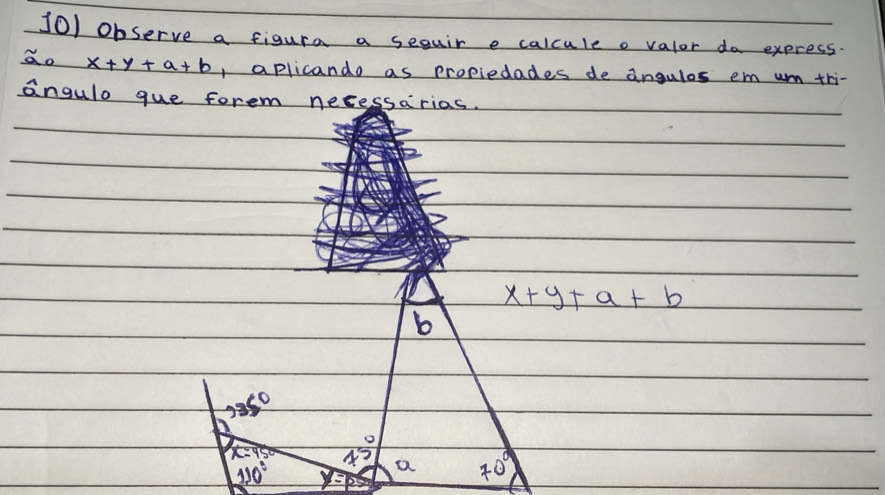 10) Observe a figura a seguir e calcule o valor da express-
ão x+y+a+b, aplicando as propiedades de ângulos em um tri-
ângulo que forem necessárias.
x+y+a+b
b
135°
x=45°
110°
75°
a
70°